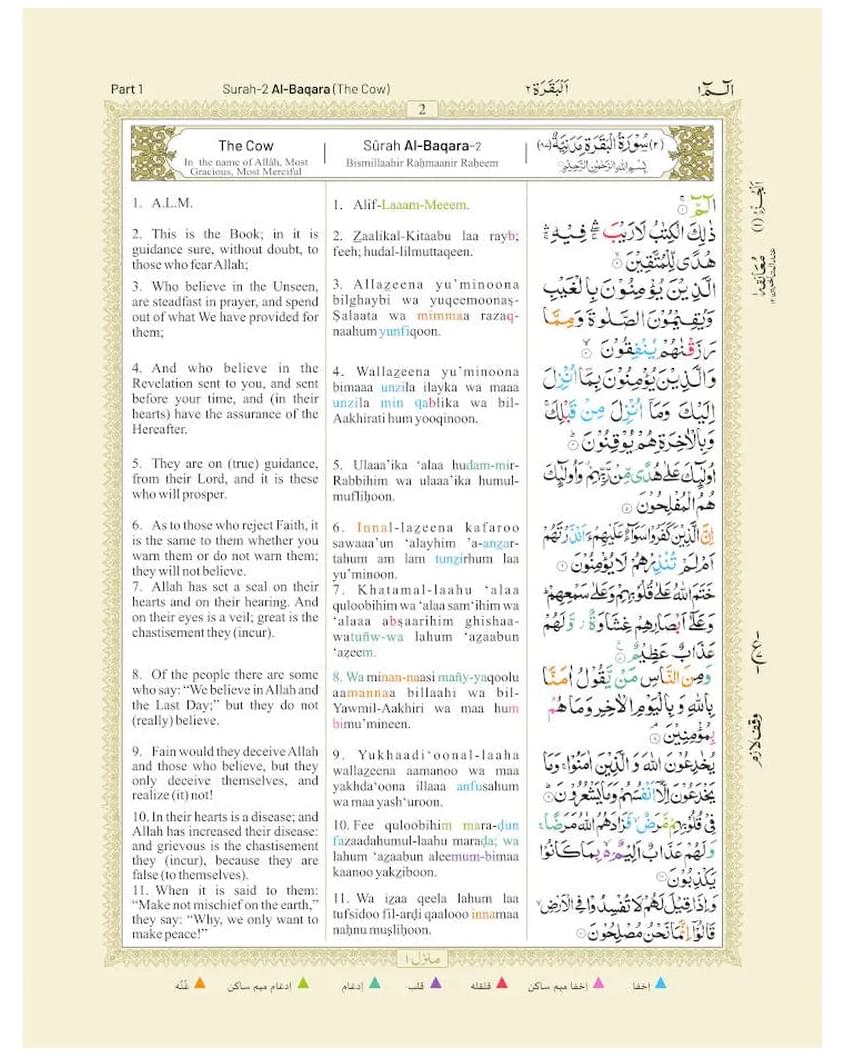 Part 1
Surah-2 Al-Baqara (The Cow)
اَلْبَقَرَة ٢
الٓمّٓ ١
2
The Cow
In the name of Allâh, Most
Gracious, Most Merciful
Sûrah Al-Baqara-2
Bismillaahir Raḥmaanir Raḥeem
(٢) سُوْرَةُ الْبَقَرَةِ مَدَنِيَّةٌ (٨٧)
بِسْمِ اللهِ الرَّحْمٰنِ الرَّحِيْمِ
1. A.L.M.
2. This is the Book; in it is
guidance sure, without doubt, to
those who fear Allah;
3. Who believe in the Unseen,
are steadfast in prayer, and spend
out of what We have provided for
them;
4. And who believe in the
Revelation sent to you, and sent
before your time, and (in their
hearts) have the assurance of the
Hereafter.
5. They are on (true) guidance,
from their Lord, and it is these
who will prosper.
6. As to those who reject Faith, it
is the same to them whether you
warn them or do not warn them;
they will not believe.
7. Allah has set a seal on their
hearts and on their hearing. And
on their eyes is a veil; great is the
chastisement they (incur).
8. Of the people there are some
who say: “We believe in Allah and
the Last Day;” but they do not
(really) believe.
9. Fain would they deceive Allah
and those who believe, but they
only deceive themselves, and
realize (it) not!
10. In their hearts is a disease; and
Allah has increased their disease:
and grievous is the chastisement
they (incur), because they are
false (to themselves).
11. When it is said to them:
“Make not mischief on the earth,”
they say: “Why, we only want to
make peace!”
1. Alif-Laaam-Meeem.
2. Z̲aalikal-Kitaabu laa rayb;
feeh; hudal-lilmuttaqeen.
3. Allaz̲eena yu’minoona
bilghaybi wa yuqeemoonaṣ-
Ṣalaata wa mimmaa razaq-
naahum yunfiqoon.
4. Wallaz̲eena yu’minoona
bimaaa unzila ilayka wa maaa
unzila min qablika wa bil-
Aakhirati hum yooqinoon.
5. Ulaaa’ika ‘alaa hudam-mir-
Rabbihim wa ulaaa’ika humul-
mufliḥoon.
6. Innal-laz̲eena kafaroo
sawaaa’un ‘alayhim ’a-anz̲ar-
tahum am lam tunz̲irhum laa
yu’minoon.
7. Khatamal-laahu ‘alaa
quloobihim wa ‘alaa sam‘ihim wa
‘alaaa abṣaarihim ghishaa-
watuñw-wa lahum ‘az̲aabun
‘aẓeem.
8. Wa minan-naasi mañy-yaqoolu
aamannaa billaahi wa bil-
Yawmil-Aakhiri wa maa hum
bimu’mineen.
9. Yukhaadi‘oonal-laaha
wallaz̲eena aamanoo wa maa
yakhda‘oona illaaa anfusahum
wa maa yash‘uroon.
10. Fee quloobihim mara-ḍun
fazaadahumul-laahu maraḍa; wa
lahum ‘az̲aabun aleemum-bimaa
kaanoo yakz̲iboon.
11. Wa iz̲aa qeela lahum laa
tufsidoo fil-arḍi qaalooo innamaa
naḥnu muṣliḥoon.
الٓمّٓ ۚ ١
ذٰلِكَ الْكِتٰبُ لَا رَيْبَ ۛ فِيْهِ ۛ
هُدًى لِّلْمُتَّقِيْنَ ٢
الَّذِيْنَ يُؤْمِنُوْنَ بِالْغَيْبِ
وَيُقِيْمُوْنَ الصَّلٰوةَ وَمِمَّا
رَزَقْنٰهُمْ يُنْفِقُوْنَ ٣
وَالَّذِيْنَ يُؤْمِنُوْنَ بِمَآ اُنْزِلَ
اِلَيْكَ وَمَآ اُنْزِلَ مِنْ قَبْلِكَ
وَبِالْاٰخِرَةِ هُمْ يُوْقِنُوْنَ ٤
اُولٰٓئِكَ عَلٰى هُدًى مِّنْ رَّبِّهِمْ وَاُولٰٓئِكَ
هُمُ الْمُفْلِحُوْنَ ٥
اِنَّ الَّذِيْنَ كَفَرُوْا سَوَآءٌ عَلَيْهِمْ ءَاَنْذَرْتَهُمْ
اَمْ لَمْ تُنْذِرْهُمْ لَا يُؤْمِنُوْنَ ٦
خَتَمَ اللهُ عَلٰى قُلُوْبِهِمْ وَعَلٰى سَمْعِهِمْ
وَعَلٰٓى اَبْصَارِهِمْ غِشَاوَةٌ وَّلَهُمْ
عَذَابٌ عَظِيْمٌ ٧
وَمِنَ النَّاسِ مَنْ يَّقُوْلُ اٰمَنَّا
بِاللهِ وَبِالْيَوْمِ الْاٰخِرِ وَمَا هُمْ
بِمُؤْمِنِيْنَ ٨
يُخٰدِعُوْنَ اللهَ وَالَّذِيْنَ اٰمَنُوْا وَمَا
يَخْدَعُوْنَ اِلَّآ اَنْفُسَهُمْ وَمَا يَشْعُرُوْنَ ٩
فِيْ قُلُوْبِهِمْ مَّرَضٌ فَزَادَهُمُ اللهُ مَرَضًا
وَلَهُمْ عَذَابٌ اَلِيْمٌ بِمَا كَانُوْا
يَكْذِبُوْنَ ١٠
وَاِذَا قِيْلَ لَهُمْ لَا تُفْسِدُوْا فِي الْاَرْضِ
قَالُوْٓا اِنَّمَا نَحْنُ مُصْلِحُوْنَ ١١
اَلْجُزْءُ (١)
مُعَانَقَة ١
ع
وقف لازم
منزل ١
إخفا
إخفا ميم ساكن
قلقله
قلب
إدغام
إدغام ميم ساكن
غُنّه